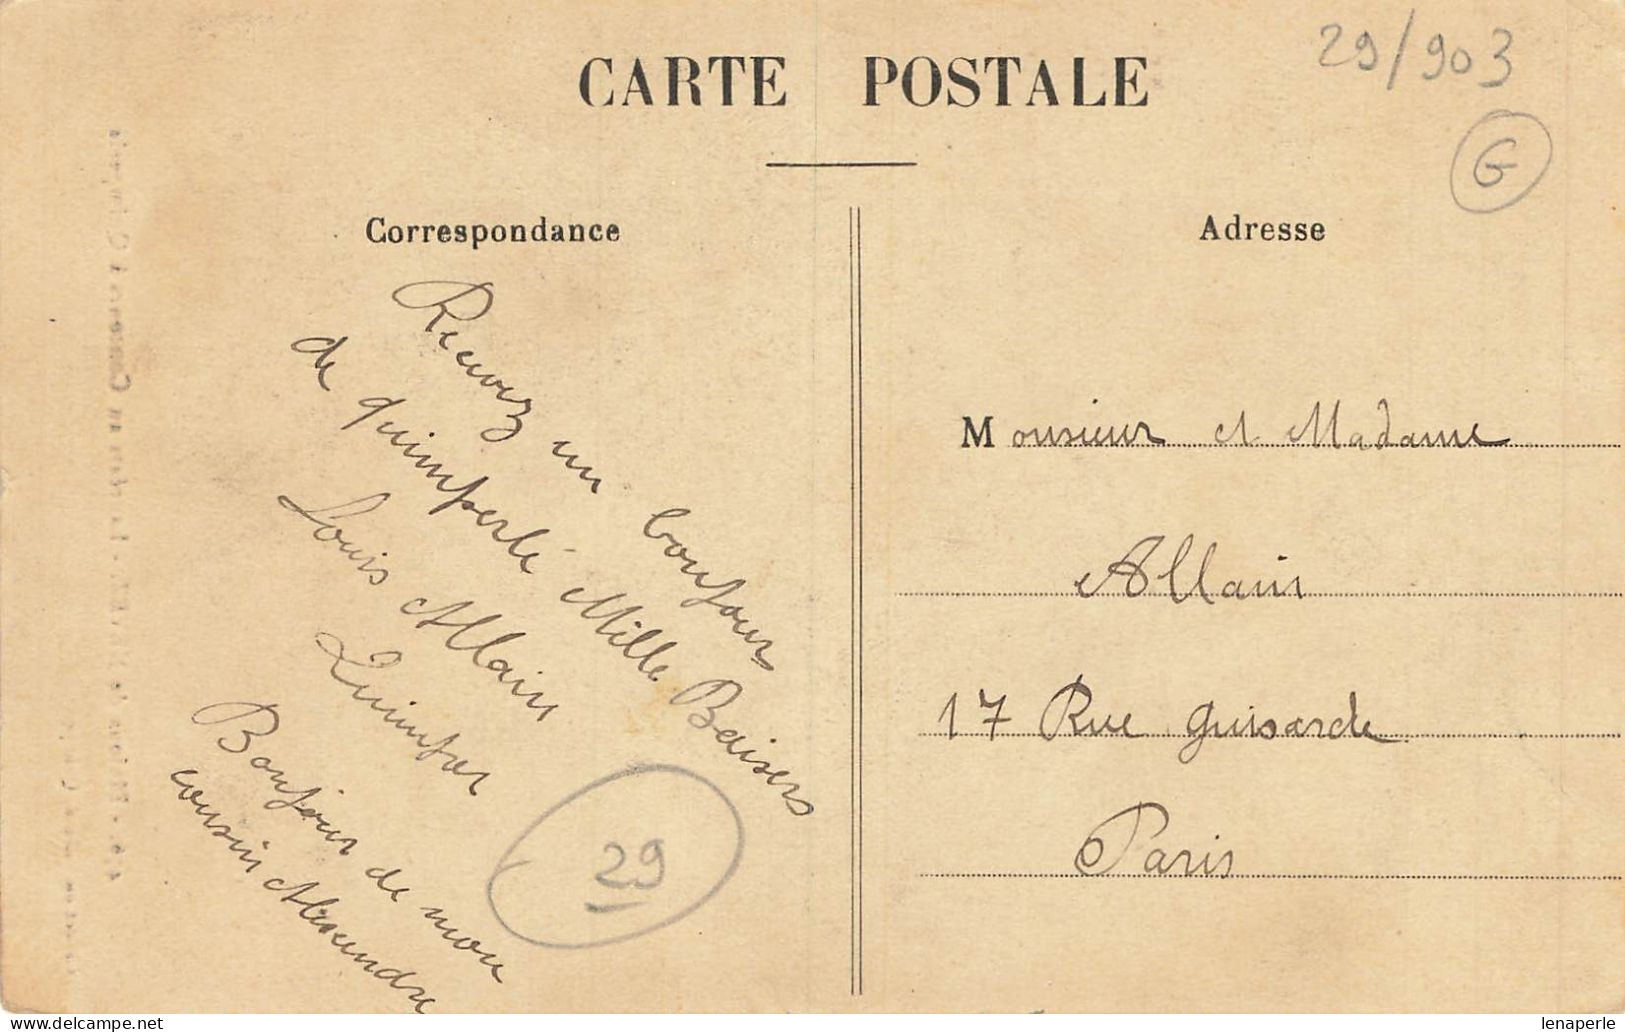 CARTE POSTALE
29/903
G
Correspondance
Recevez un bonjour
de quimperlé Mille Baisers
Louis Allain
Quimper
Bonjour de mon
cousin Alexandre
29
Adresse
Monsieur et Madame
Allain
17 Rue guisarde
Paris
lenaperle